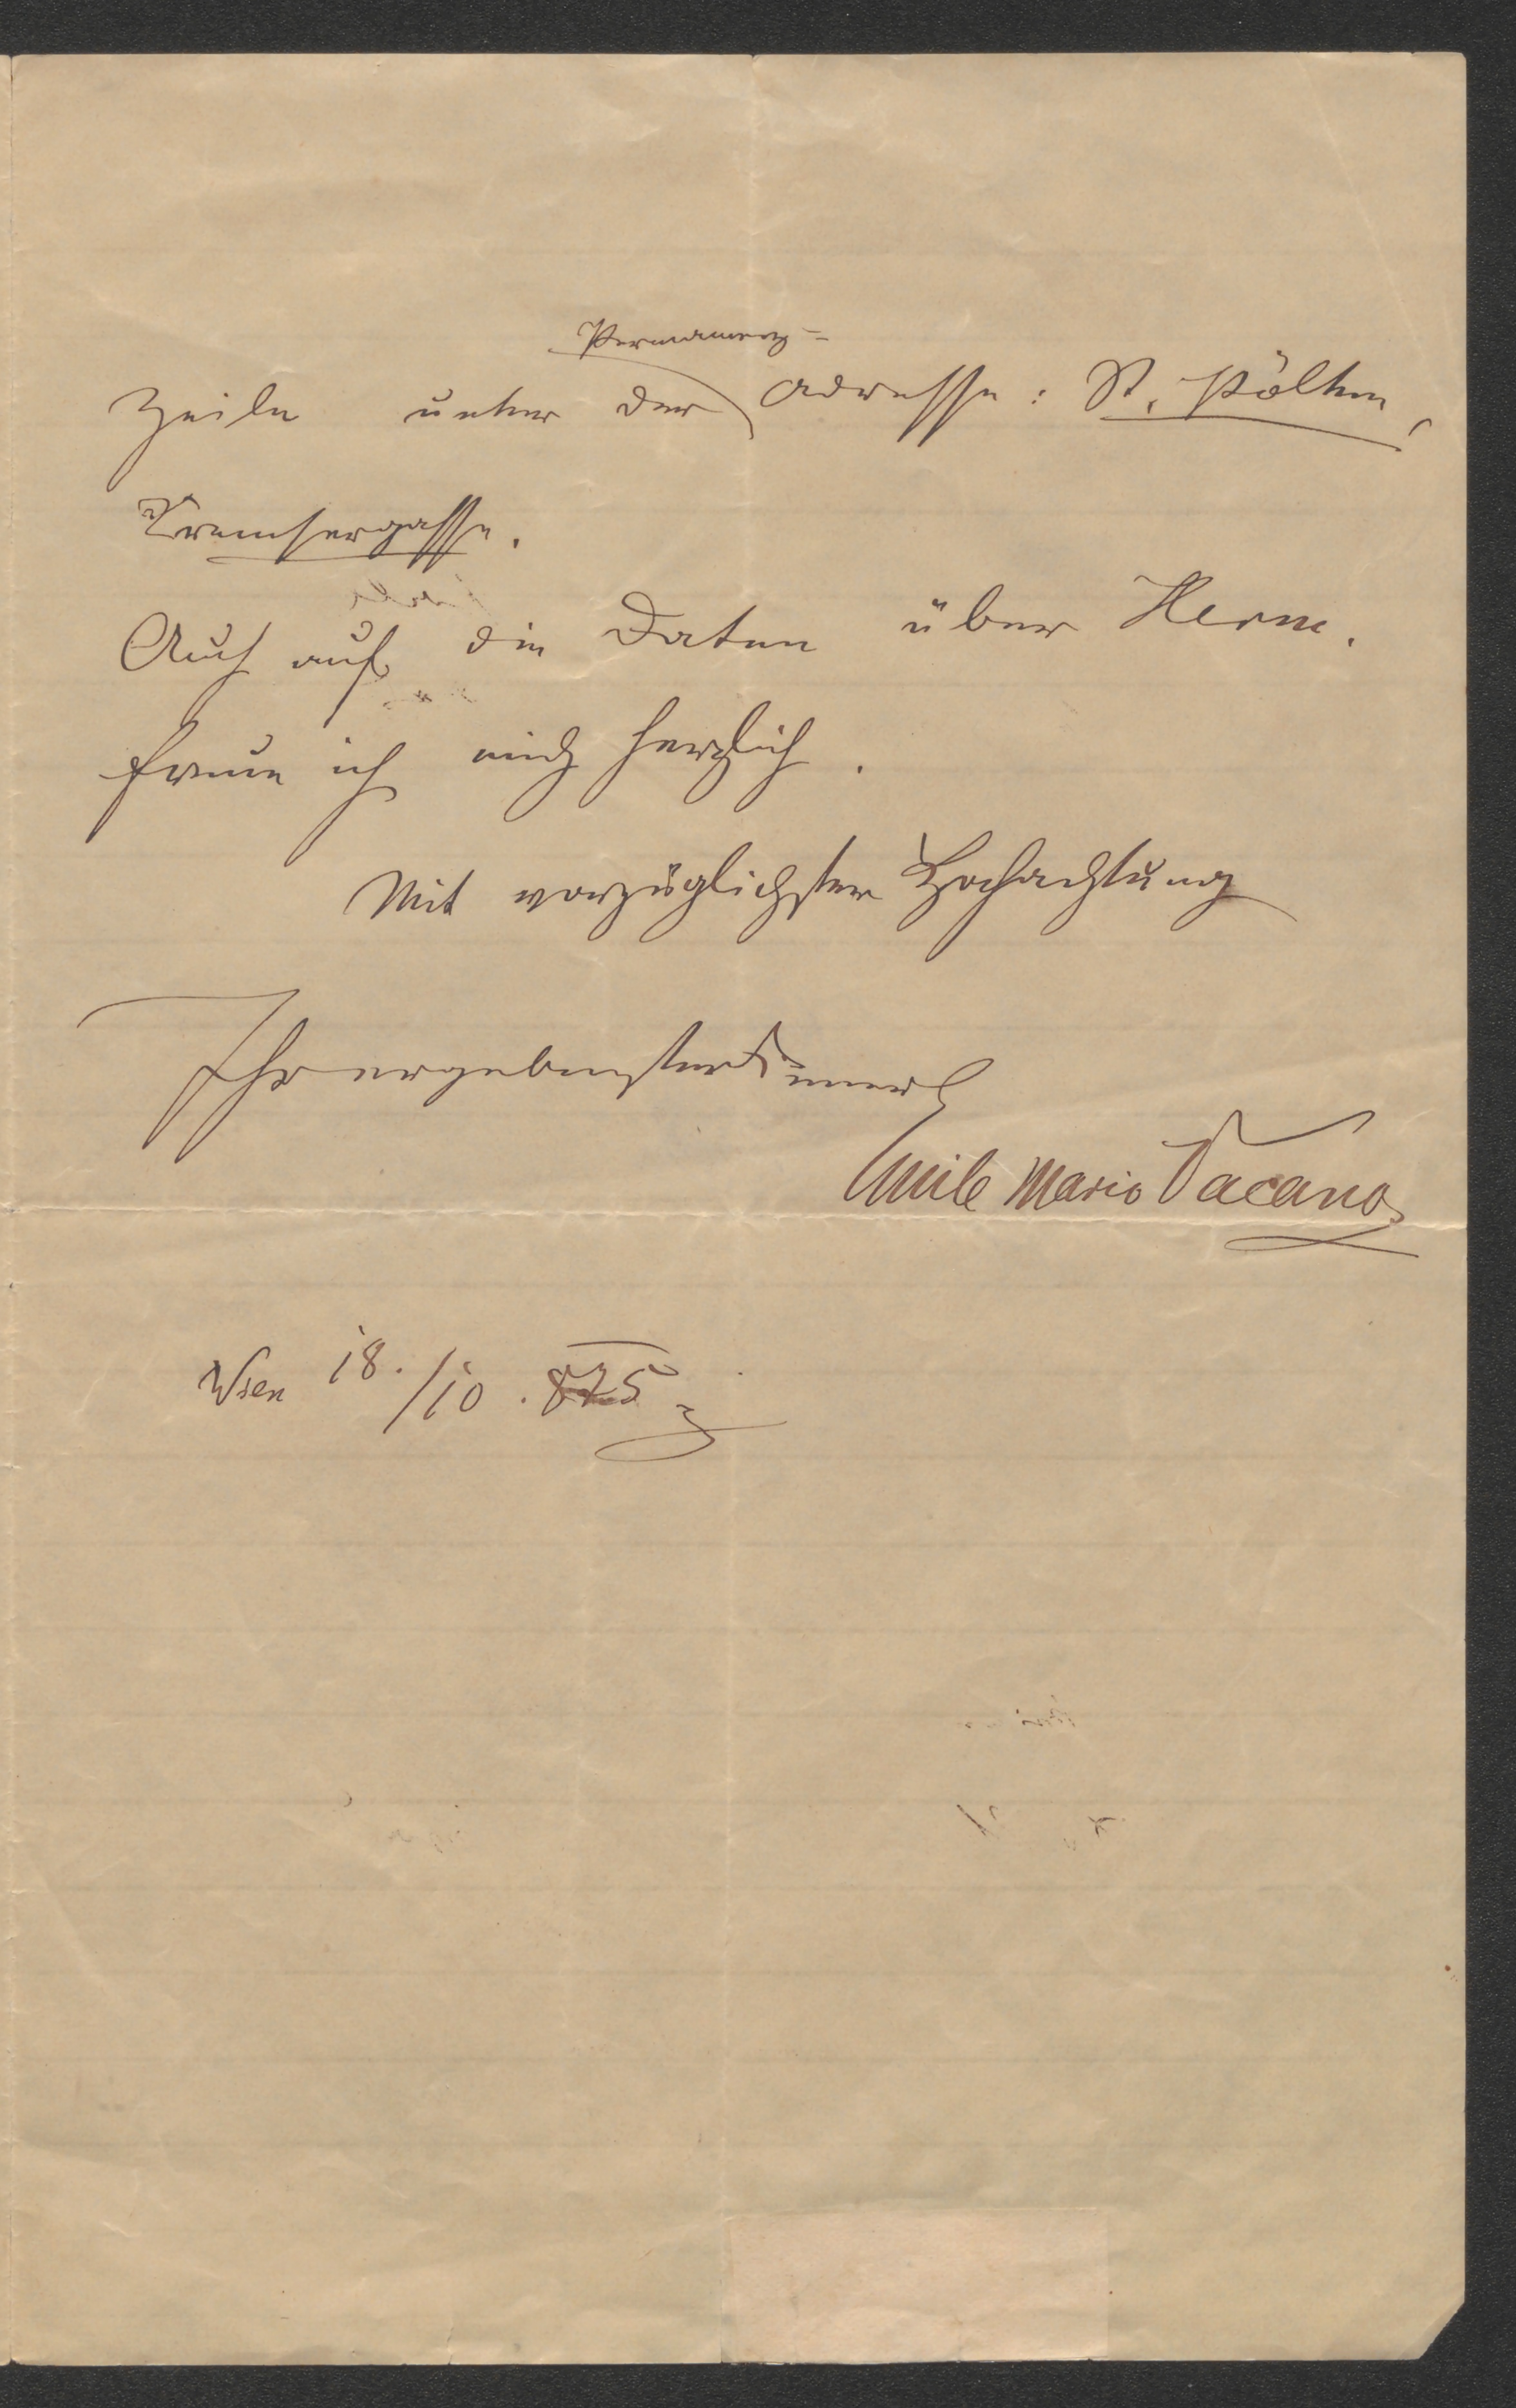 Permanenz=
Zeile unter der Adresse: St. Pölten,
Kremsergasse.
Auch auf die Daten über Herm.
freue ich mich herzlich.
Mit vorzüglichster Hochachtung
Ihr ergebenster Diener
Emile Mario Vacano
Wien 18./10. 875